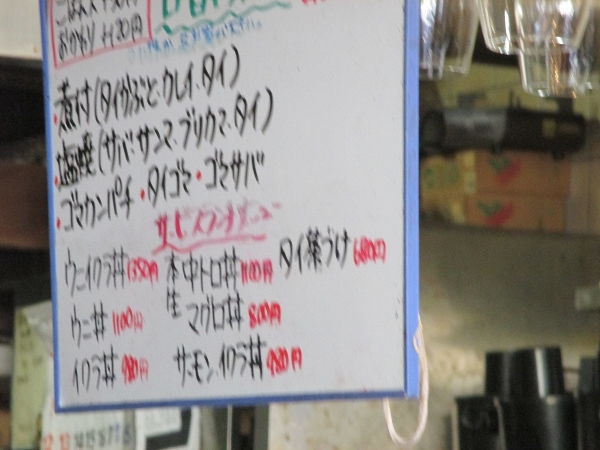 おかわり +120円
・煮付(タイかぶと・カレイ・タイ)
・塩焼(サバ・サンマ・ブリカマ・タイ)
・ゴマカンパチ ・タイゴマ ・ゴマサバ
サービスランチメニュー
ウニイクラ丼1350円 本中トロ丼1100円 タイ茶づけ680円
ウニ丼 1100円 生マグロ丼 800円
イクラ丼 980円 サーモンイクラ丼980円
12 13 14 15